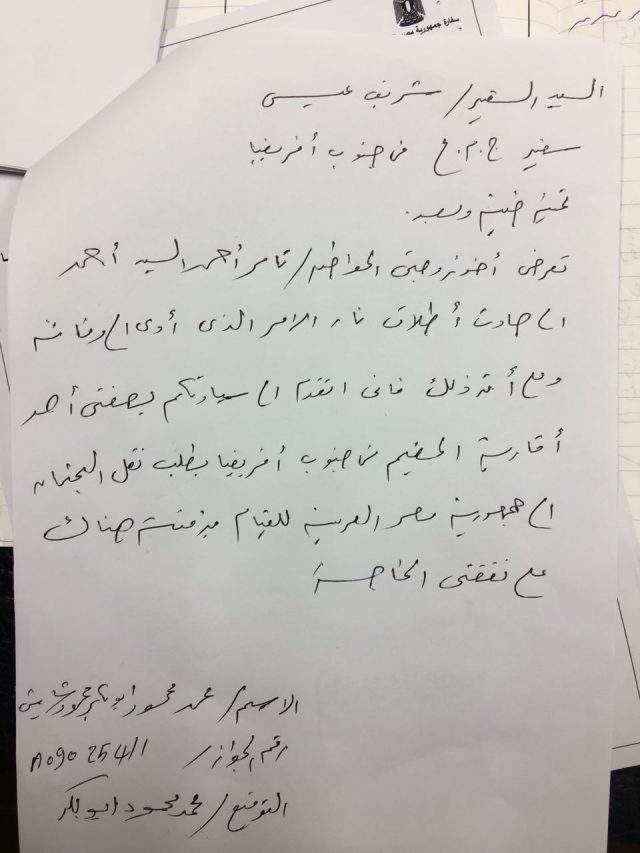 سفارة جمهورية مصر
السيد السفير / شريف عيسى
سفير ج.م.ع فى جنوب أفريقيا
تحية طيبة وبعد.
تعرض أخو زوجتى المواطن / تامر أحمد السيد أحمد
الى حادث أطلاق نار الامر الذى أدى الى وفاته
وعلى أثر ذلك فانى اتقدم الى سيادتكم بصفتى أحد
أقاربه المقيم فى جنوب أفريقيا بطلب نقل الجثمان
الى جمهورية مصر العربية للقيام بدفنه هناك
على نفقتى الخاصة
الاسم / محمد محمود ابوبكر محمود
رقم الجواز / A09025411
التوقيع / محمد محمود ابوبكر